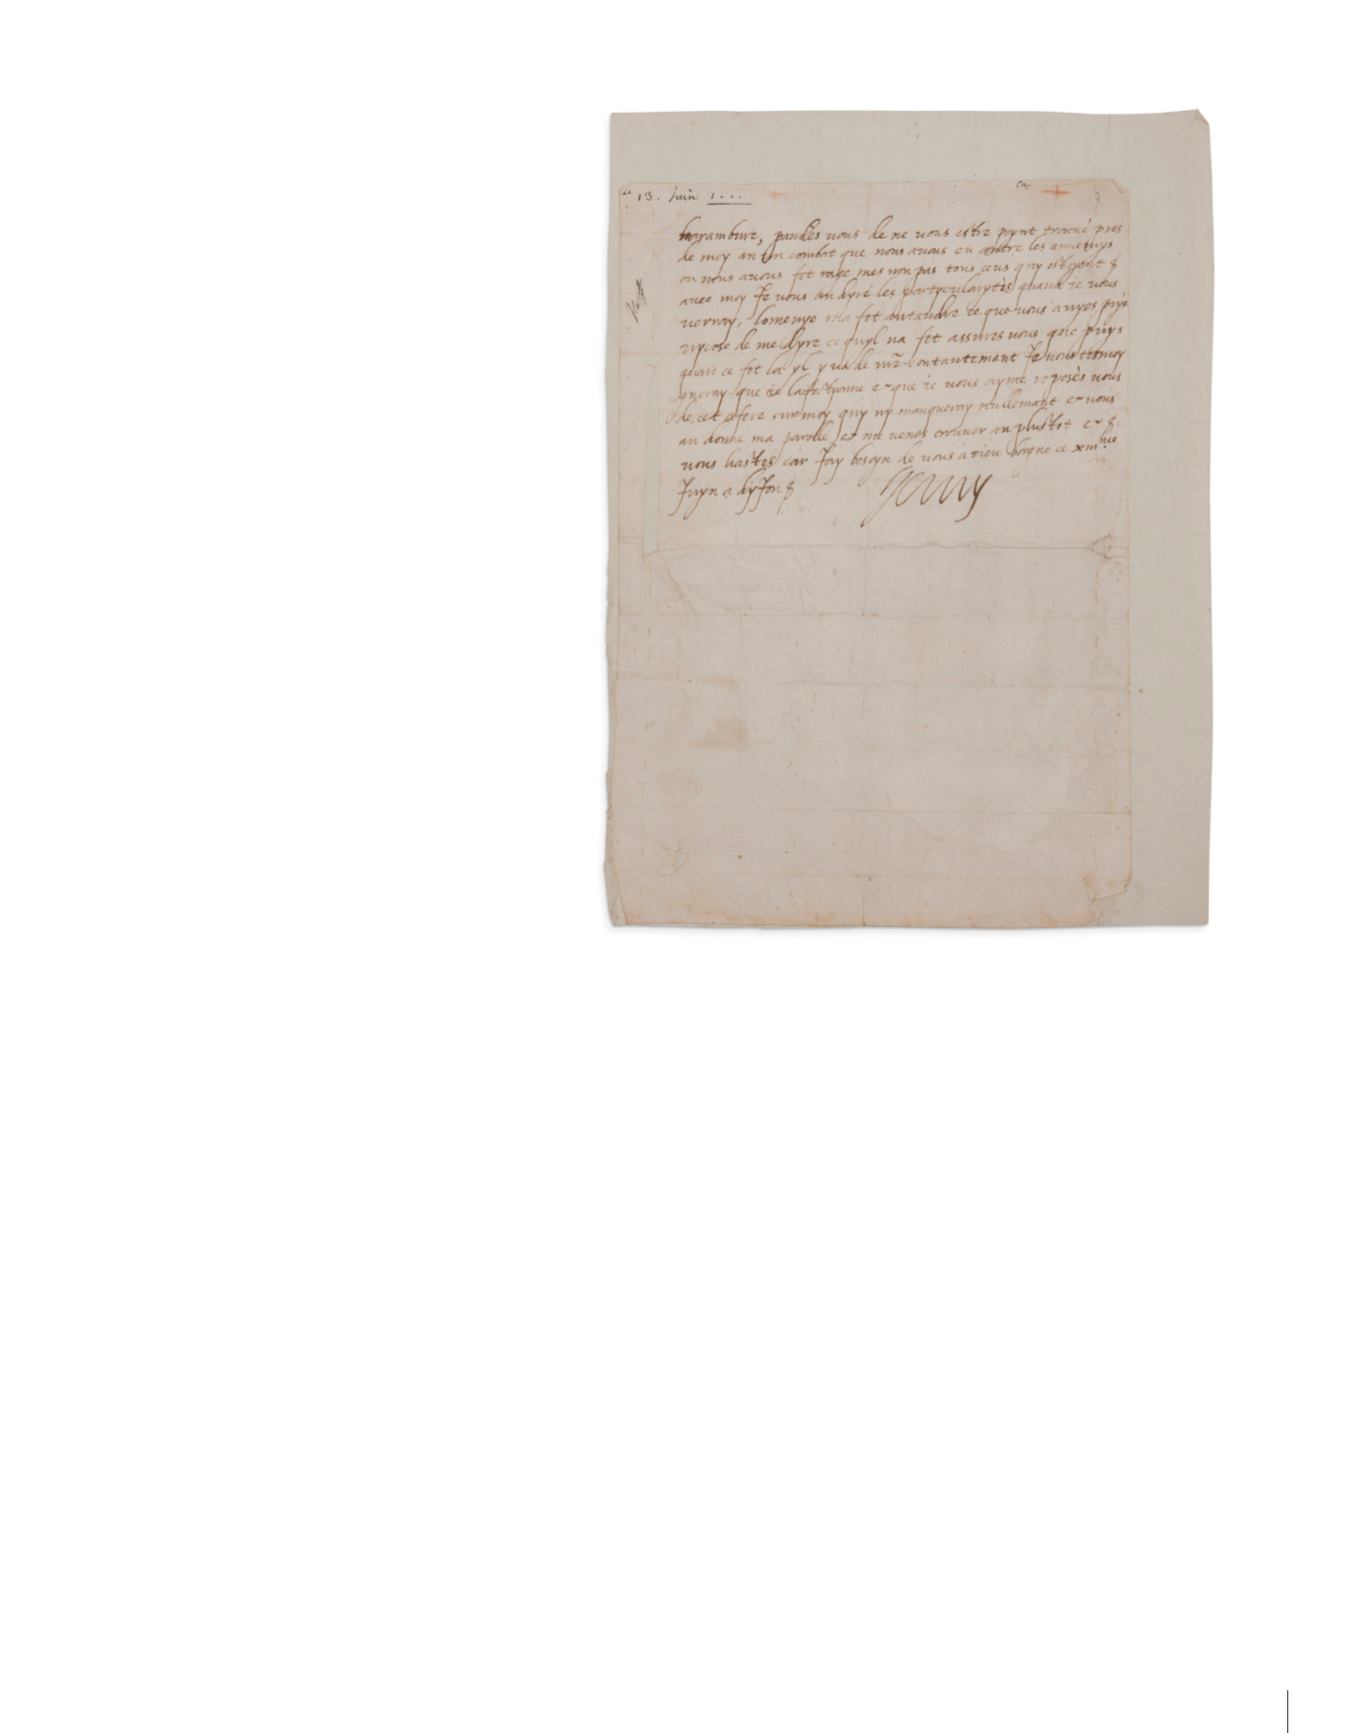 13. Juin 1...
harambure, pandes vous de ne vous estre poynt trouvé pres
de moy an un combat que nous avons eu contre les annemys
ou nous avons fet rage mes non pas tous ceus quy estoyent
avec moy Je vous an dyré les partycularytés quand ie vous
verray, lomenye ma fet antandre ce que vous avyes
de me dyre ce quyl na fet assures vous que ie puys
ce fet la yl y va de contantemant Je vous temoy
gneray que ie lafectyonne et que ie vous ayme reposés vous
de cet afere sur moy quy ny manqueray nullemant et vous
an donne ma parolle et me venes trouver au plustot et
vous hastes car Jay besoyn de vous a dieu borgne ce xiii.me
Juyn a dyjon
Henry